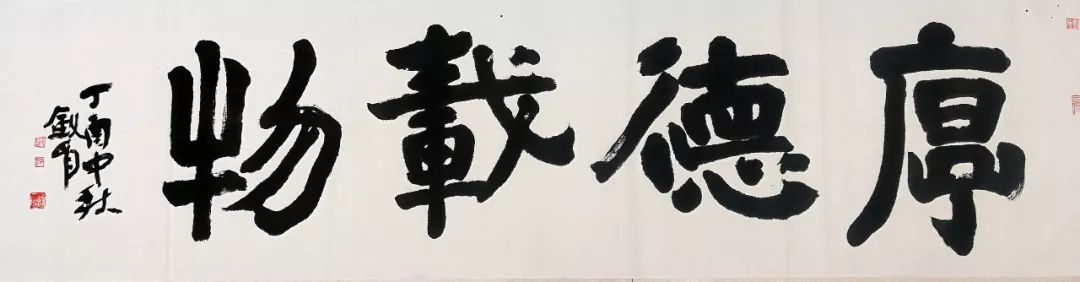 厚德載物
丁酉中秋